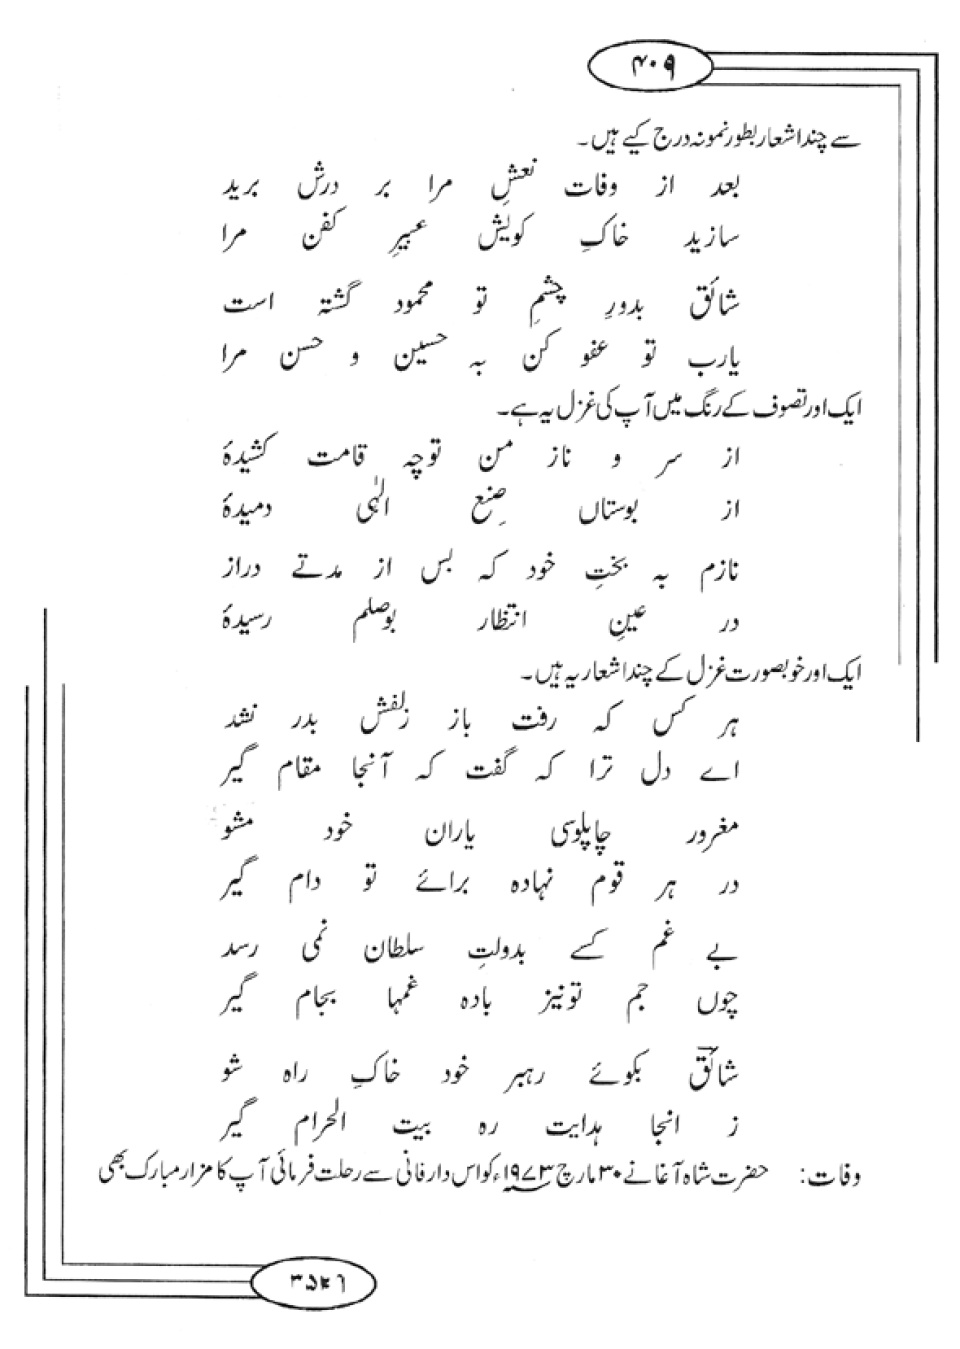 ۴۰۹
سے چند اشعار بطور نمونہ درج کیے ہیں۔
بعد از وفات نعشِ مرا بر درش برید
سازید خاکِ کویش عبیرِ کفن مرا
شائق بدورِ چشمِ تو محمود گشتہ است
یارب تو عفو کن بہ حسین و حسن مرا
ایک اور تصوف کے رنگ میں آپ کی غزل یہ ہے۔
از سر و ناز من توچہ قامت کشیدۂ
از بوستاں صنِع الہٰی دمیدۂ
نازم بہ بختِ خود کہ بس از مدتے دراز
در عینِ انتظار بوصلم رسیدۂ
ایک اور خوبصورت غزل کے چند اشعار یہ ہیں۔
ہر کس کہ رفت باز زلفش بدر نشد
اے دل ترا کہ گفت کہ آنجا مقام گیر
مغرور چاپلوسی یاران خود مشو
در ہر قوم نہادہ برائے تو دام گیر
بے غم کسے بدولتِ سلطان نمی رسد
چوں جم تونیز بادہ غمہا بجام گیر
شائق بکوئے رہبر خود خاکِ راہ شو
ز انجا ہدایت رہ بیت الحرام گیر
وفات: حضرت شاہ آغا نے ۳۰ مارچ ۱۹۷۳ء کو اس دار فانی سے رحلت فرمائی آپ کا مزار مبارک بھی